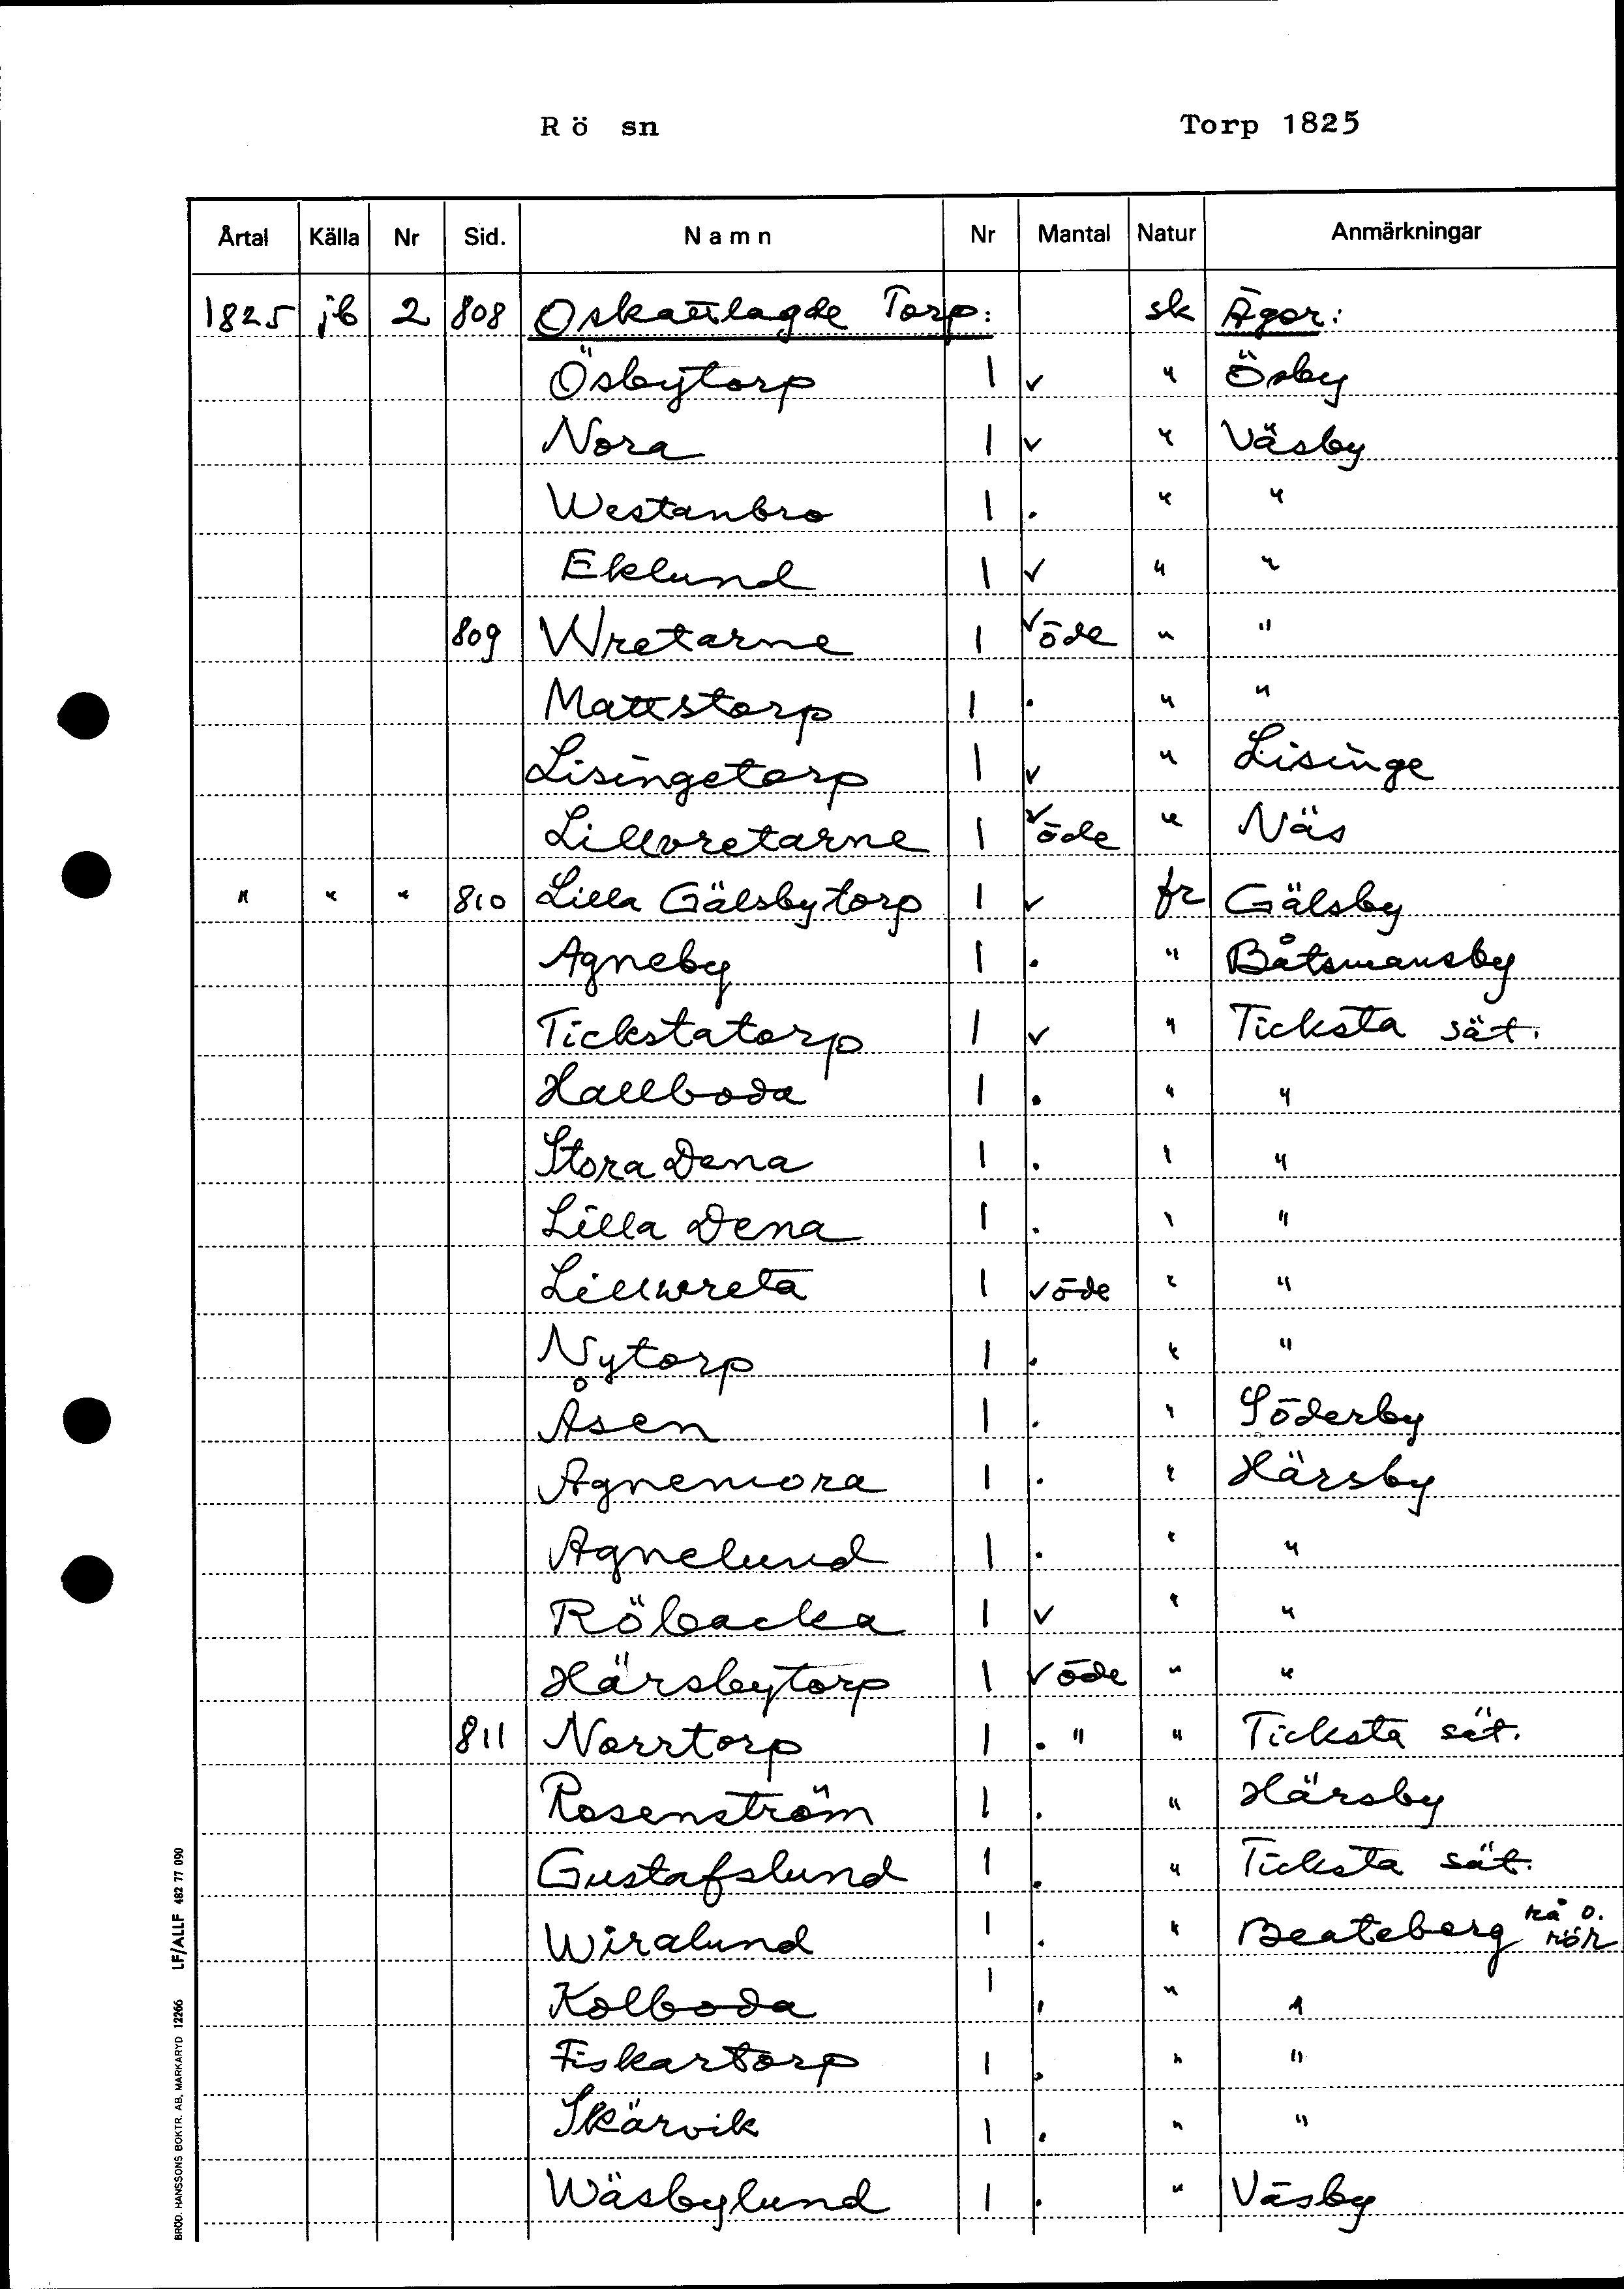 Rö sn Torp 1825
Årtal Källa Nr Sid. Namn Nr Mantal Natur Anmärkningar
1825 jb 2 808 Oskattlagde Torp: sk Ägor:
Ösbytorp 1 ✓ " Ösby
Nora 1 ✓ " Väsby
Westanbro 1 . " "
Eklund 1 ✓ " "
809 Wretarne 1 ✓ öde " "
Mattstorp 1 . " "
Lisingetorp 1 ✓ " Lisinge
Lillvretarne 1 ✓ öde " Näs
" " " 810 Lilla Gälsbytorp 1 ✓ fr Gälsby
Agneby 1 . " Båtsmansby
Tickstatorp 1 ✓ " Ticksta sät.
Hallboda 1 . " "
Stora Dena 1 . " "
Lilla Dena 1 . " "
Lillwreta 1 ✓ öde " "
Nytorp 1 . " "
Åsen 1 . " Söderby
Agnemora 1 . " Härsby
Agnelund 1 . " "
Röbacka 1 ✓ " "
Härsbytorp 1 ✓ öde " "
811 Norrtorp 1 . " " Ticksta sät.
Rosenström 1 . " Härsby
Gustafslund 1 . " Ticksta sät.
Wiralund 1 . " Beateberg rå o. rör
Kolboda 1 . " "
Fiskartorp 1 . " "
Skärvik 1 . " "
Wäsbylund 1 . " Väsby
BRÖD. HANSSONS BOKTR. AB, MARKARYD 12266 LF/ALLF 482 77 090